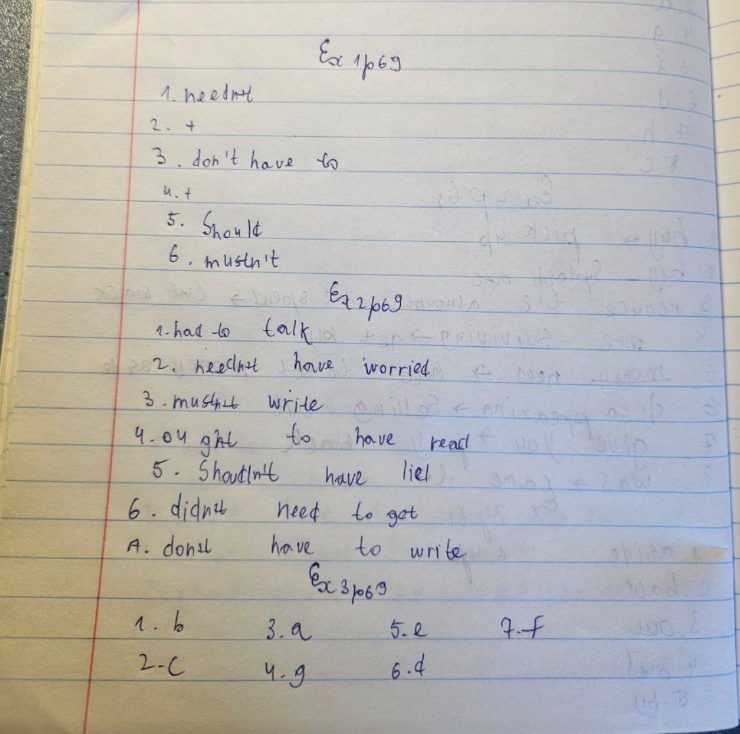 Ex 1p69
1. needn't
2. +
3. don't have to
4. +
5. Should
6. mustn't
Ex 2p69
1. had to talk
2. needn't have worried
3. mustn't write
4. ought to have read
5. Shouldn't have lied
6. didn't need to get
A. don't have to write
Ex 3p69
1. b 3. a 5. e 7. f
2. c 4. g 6. d